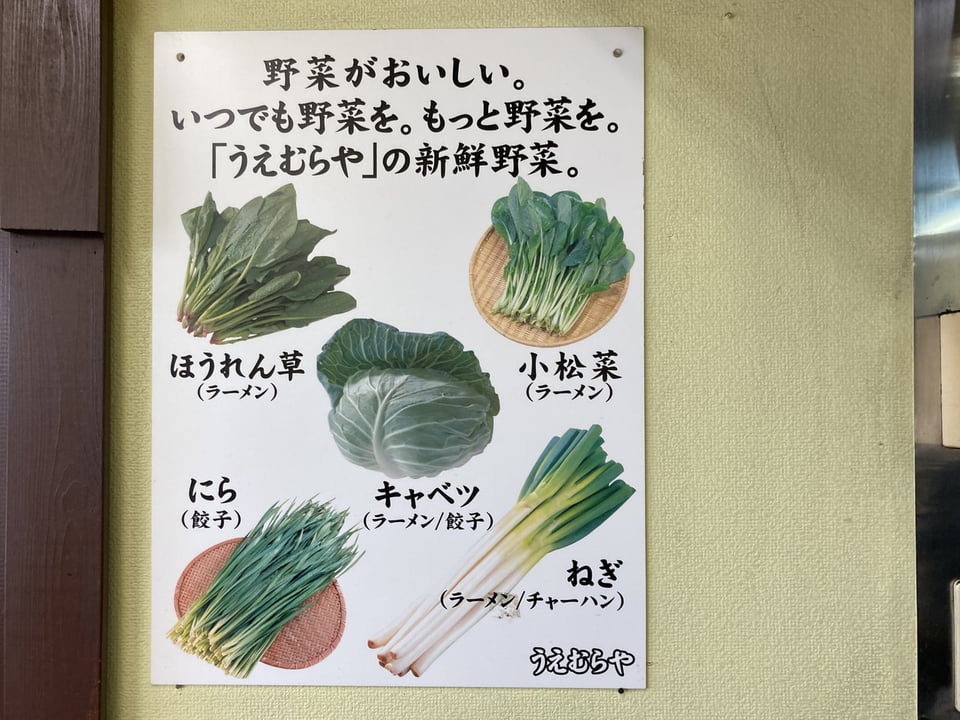 野菜がおいしい。
いつでも野菜を。もっと野菜を。
「うえむらや」の新鮮野菜。
ほうれん草
(ラーメン)
小松菜
(ラーメン)
キャベツ
(ラーメン/餃子)
にら
(餃子)
ねぎ
(ラーメン/チャーハン)
うえむらや